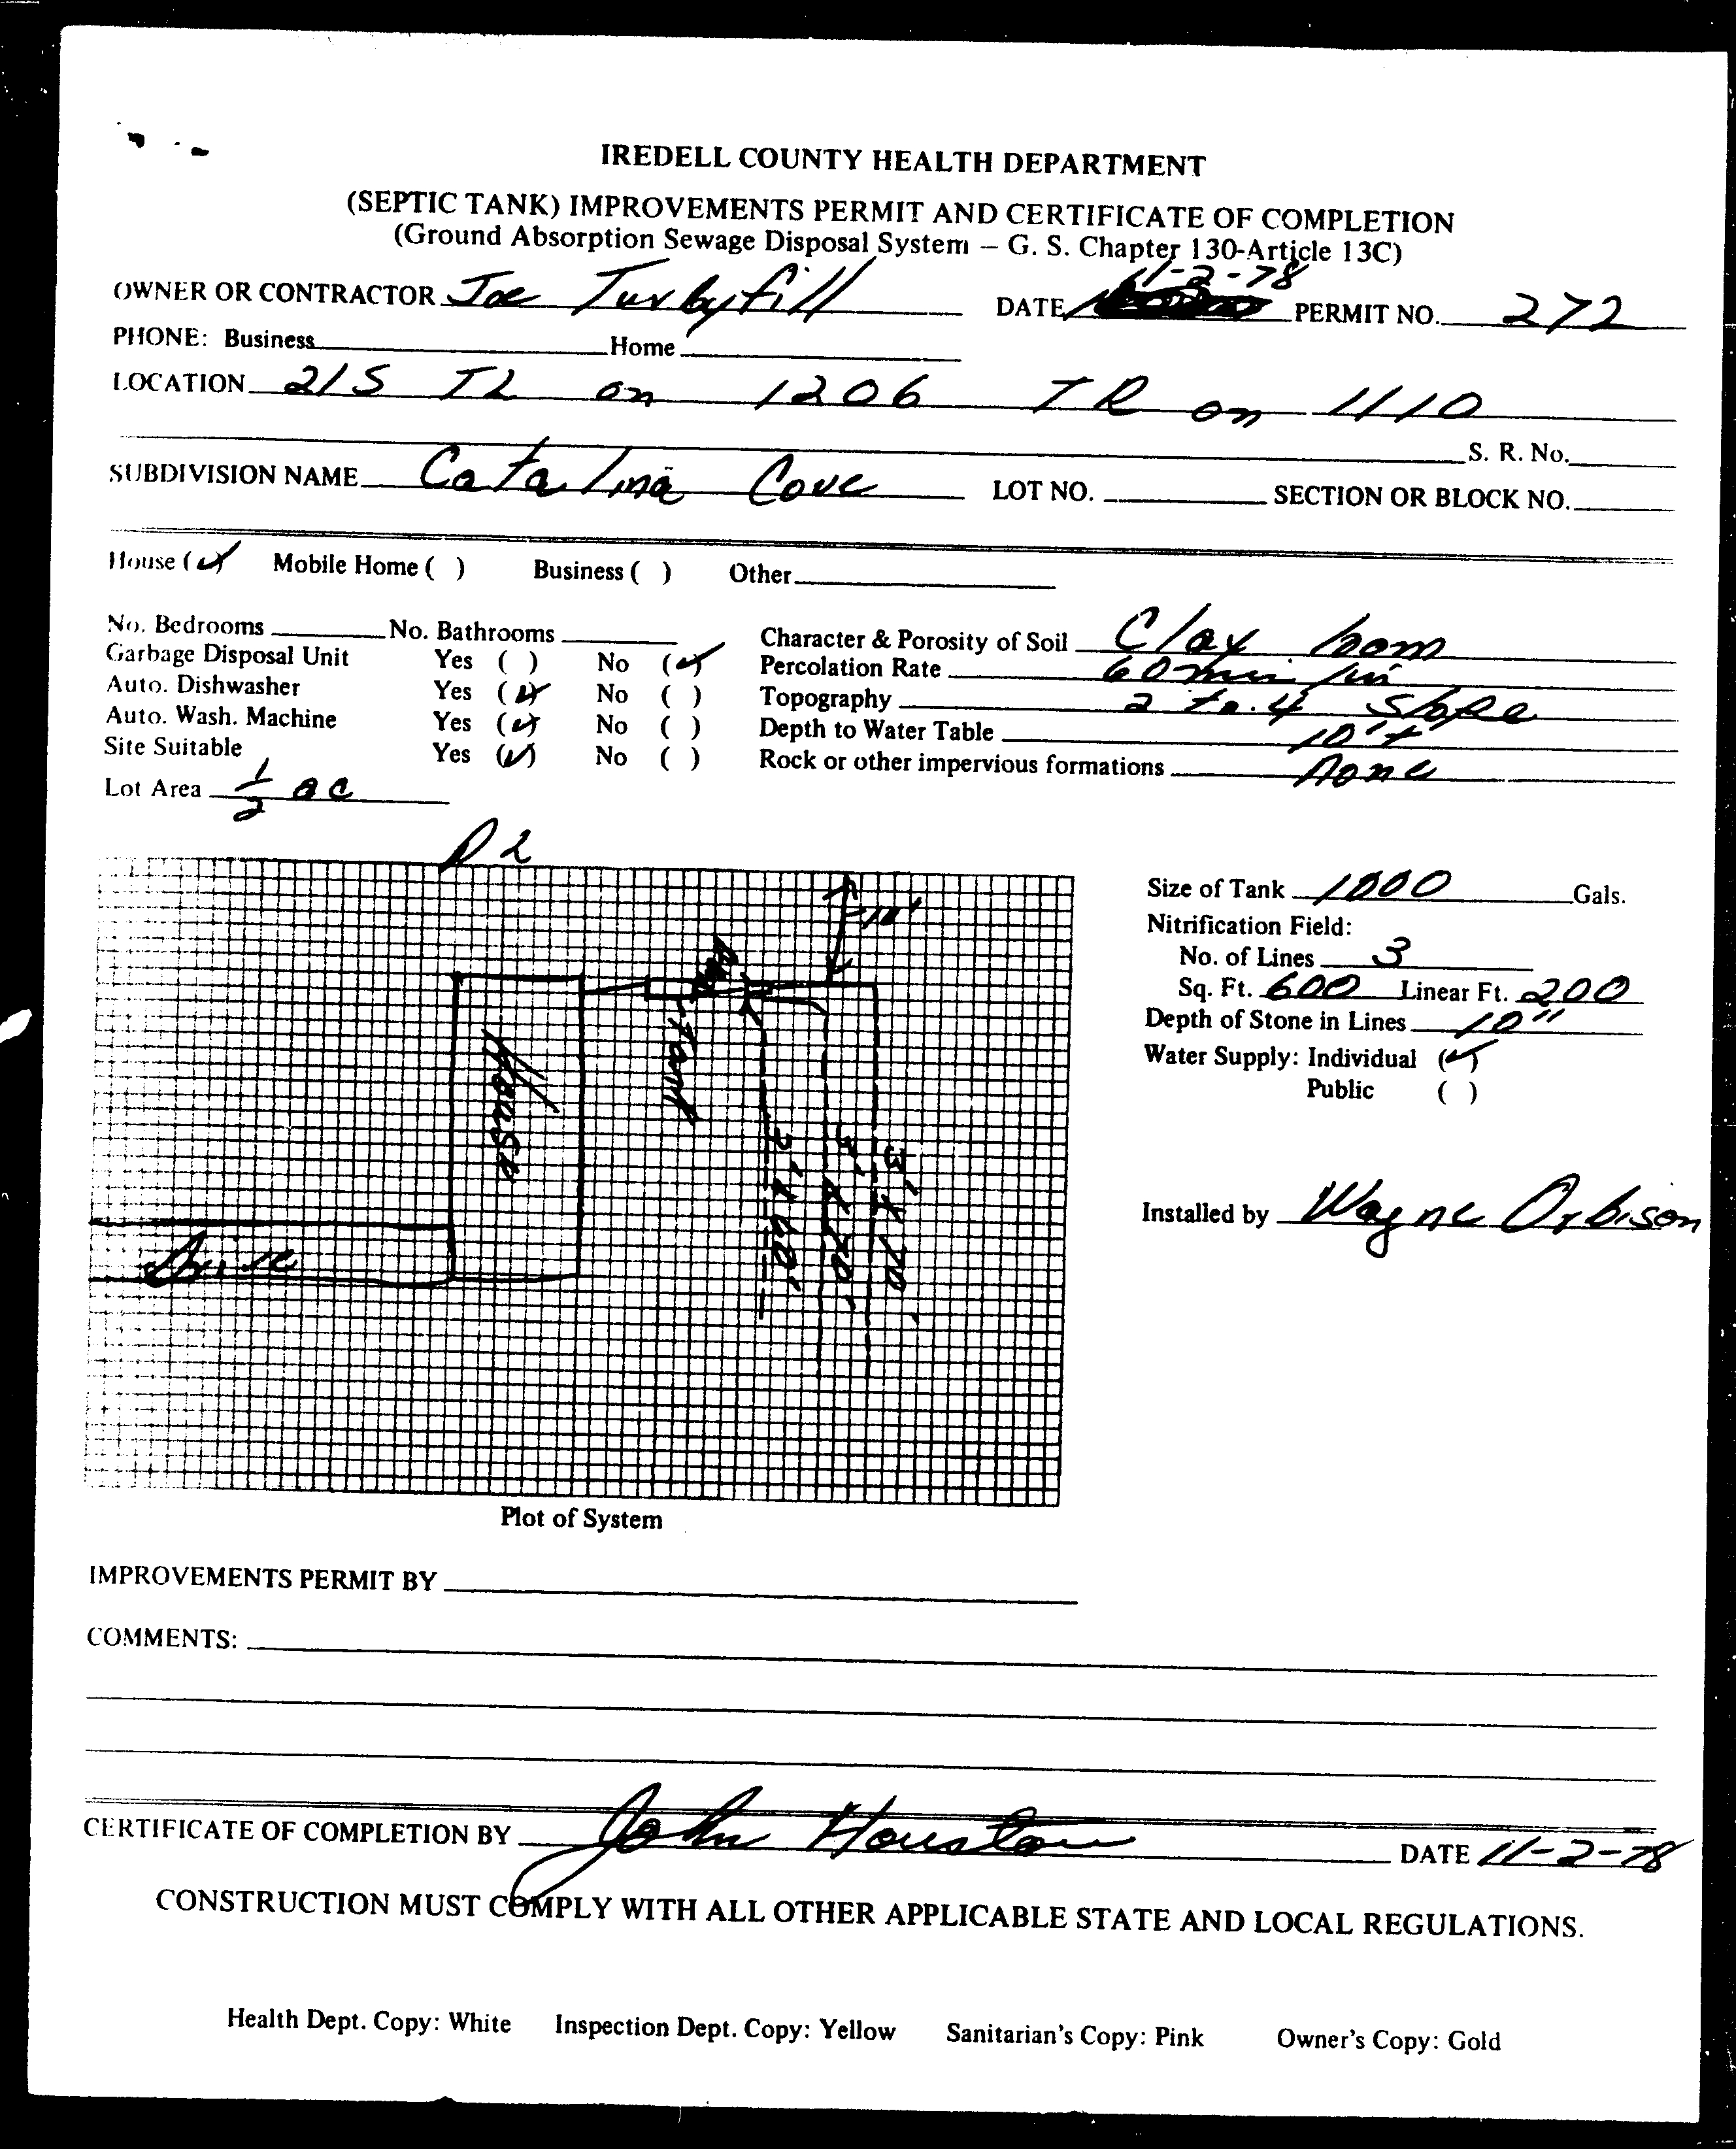 IREDELL COUNTY HEALTH DEPARTMENT
(SEPTIC TANK) IMPROVEMENTS PERMIT AND CERTIFICATE OF COMPLETION
(Ground Absorption Sewage Disposal System – G. S. Chapter 130-Article 13C)
OWNER OR CONTRACTOR Joe Turbyfill DATE 11-2-78 PERMIT NO. 272
PHONE: Business Home
LOCATION 21S TL on 1206 TR on 1110
S. R. No.
SUBDIVISION NAME Catalina Cove LOT NO. SECTION OR BLOCK NO.
House (✓) Mobile Home ( ) Business ( ) Other
No. Bedrooms No. Bathrooms Character & Porosity of Soil Clay loam
Garbage Disposal Unit Yes ( ) No (✓) Percolation Rate 60 min/in
Auto. Dishwasher Yes (✓) No ( ) Topography 2 to 4 slope
Auto. Wash. Machine Yes (✓) No ( ) Depth to Water Table 10'+
Site Suitable Yes (✓) No ( ) Rock or other impervious formations none
Lot Area 1/2 ac
10'
House
Tank
3' x 60'
3' x 70'
3' x 70'
Drive
Plot of System
Size of Tank 1000 Gals.
Nitrification Field:
No. of Lines 3
Sq. Ft. 600 Linear Ft. 200
Depth of Stone in Lines 10"
Water Supply: Individual (✓)
Public ( )
Installed by Wayne Orbison
IMPROVEMENTS PERMIT BY
COMMENTS:
CERTIFICATE OF COMPLETION BY John Houston DATE 11-2-78
CONSTRUCTION MUST COMPLY WITH ALL OTHER APPLICABLE STATE AND LOCAL REGULATIONS.
Health Dept. Copy: White Inspection Dept. Copy: Yellow Sanitarian's Copy: Pink Owner's Copy: Gold